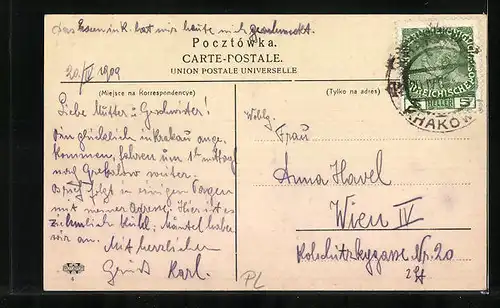 Das Essen in K. hat mir heute nicht geschmeckt.
Pocztówka.
CARTE-POSTALE.
UNION POSTALE UNIVERSELLE
20./IV 1909
(Miejsce na Korrespondencye)
(Tylko na adres)
HELLER 5
KRAKÓW
Liebe Mutter u. Geschwister!
Bin glücklich in Krakau ange-
kommen, fahren um 1ʰ mittag
nach weiter.
folgt in einigen Tagen
mit meiner Adresse. Hier ist es
ziemlich kühl; Mäntel haben
wir an. Mit herzlichen
Gruß Karl.
Wohlg.
Frau
Anna Havel
Wien IV
Nr. 20
PL